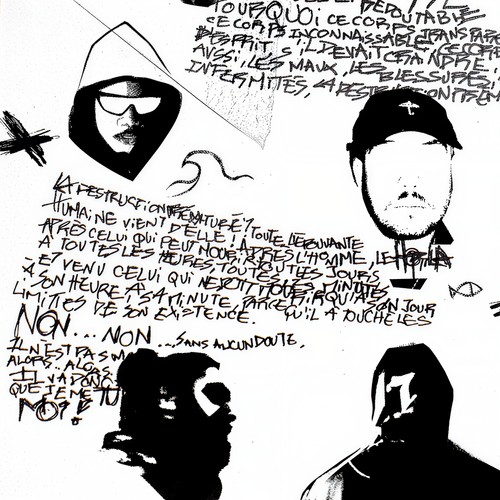 REDOUTABLE
POURQUOI CE CORPS TRANSPARENT
CE CORPS INCONNAISSABLE, CE CORPS
D'ESPRIT, S'IL DEVAIT CRAINDRE,
AUSSI, LES MAUX, LES BLESSURES,
INFIRMITÉS, LA DESTRUCTION PRÉM
LA DESTRUCTION PREMATURÉ?
HUMAINE VIENT D'ELLE! TOUTE L'ÉPOUVANTE
APRÈS CELUI QUI PEUT MOURIR, APRÈS L'HOMME, LE HORLA
A TOUTES LES HEURES, TOUTES LES JOURS
EST VENU CELUI QUI NE DOIT MINUTES
A SON HEURE, A SA MINUTE, PARCE QU'IL A SON JOUR
LIMITES DE SON EXISTENCE. QU'IL A TOUCHÉ LES
NON... NON... SANS AUCUN DOUTE,
IL N'EST PAS M
ALORS.. ALORS.
IL VA DONC
QUE JE ME TU
MOI!